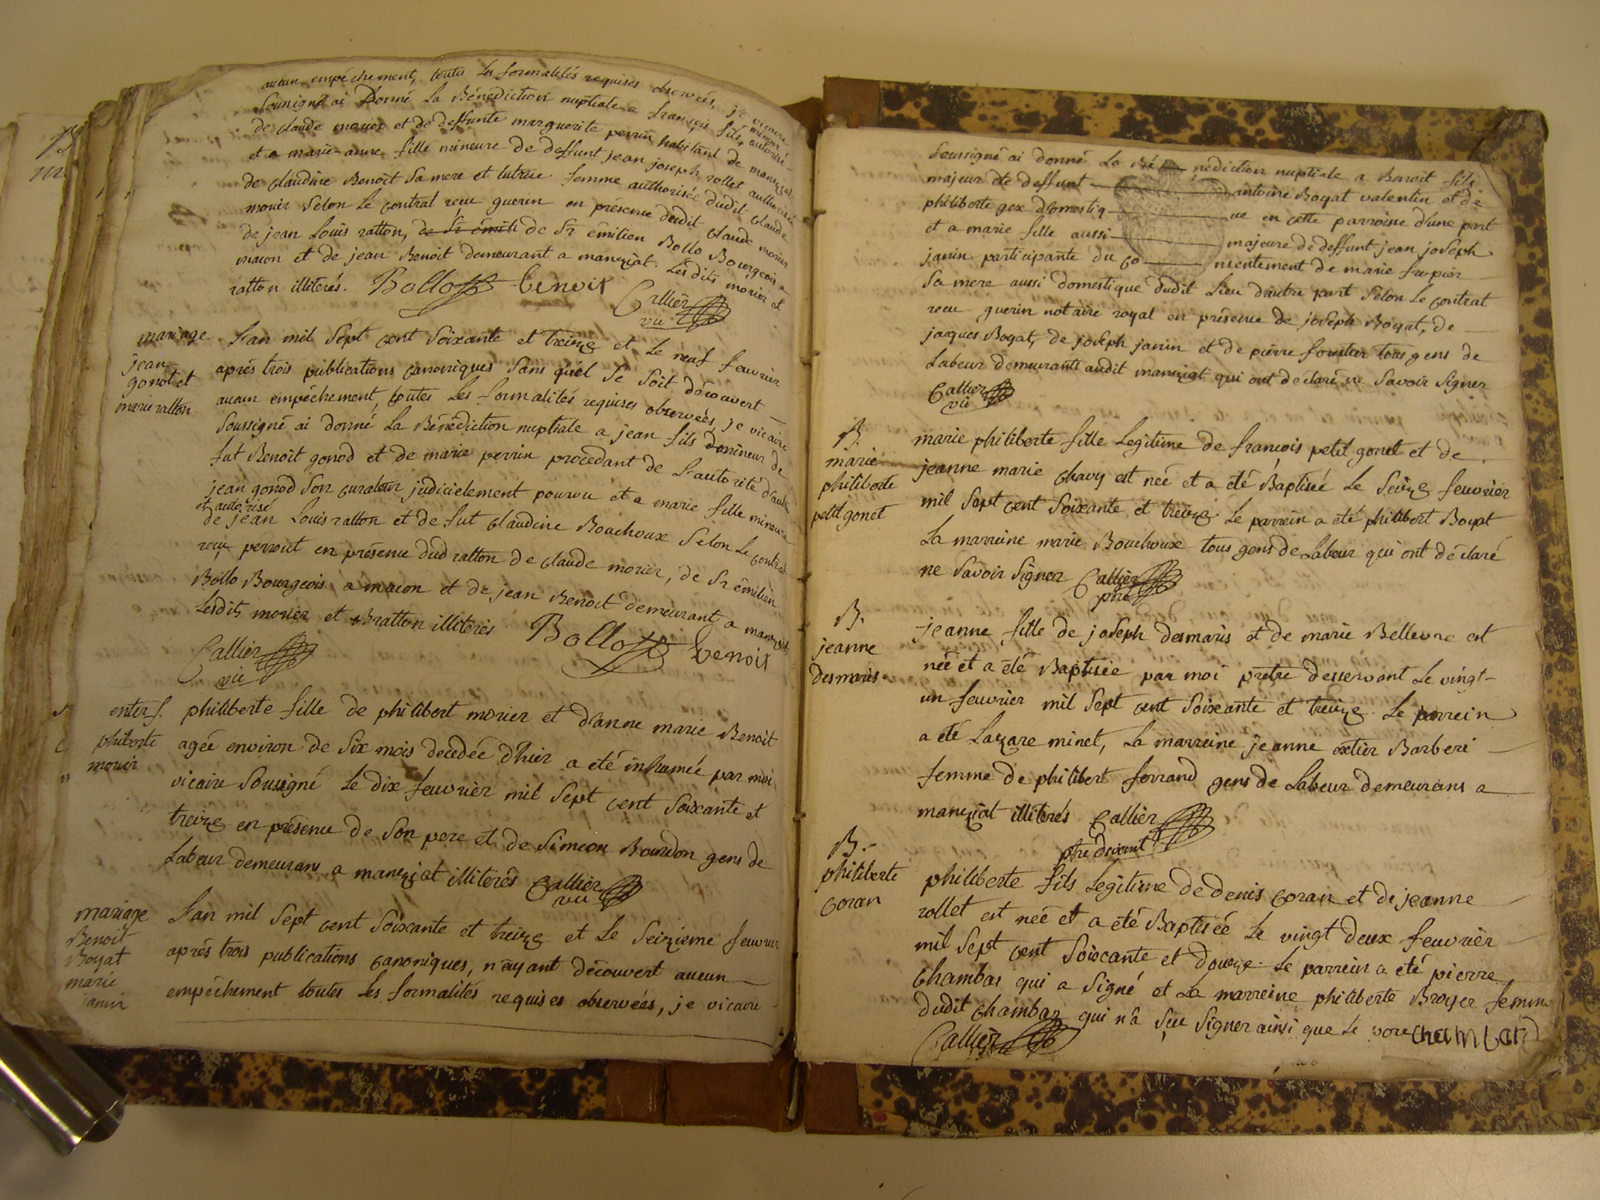 aucun empéchement, toutes les formalités requises observées, je vicaire
soussigné ai Donné La Bénédiction nuptiale a françois fils mineur
de Claude morier et de deffunte marguerite perrin habitant de manziat
et a marie anne fille mineure de deffunt jean joseph rollet authorisée
de Claudine Benoit Sa mere et tutrice femme authorisée dudit Claude
morier Selon Le contrat reçu guerin en présence dudit Claude morier
de jean Louis ratton, de Sr émili de Sr emilien Bollo Bourgeois a
macon et de jean Benoit demeurant a manziat. Lesdits morier et
ratton illiterés. Bollo Benoit
Callier
vic
mariage
jean
gonot et
marie ratton
Lan mil Sept cent Soixante et treize et Le neuf feuvrier
aprés trois publications canoniques Sans quel Se Soit découvert
aucun empéchement, toutes Les formalités requises observées, je vicaire
Soussigné ai donné La Bénédiction nuptiale a jean fils domineur de
fut Benoit gonod et de marie perrin procédant de L'autorité d'autre
jean gonod Son curateur judiciclement pourvu et a marie fille mineure
et autorisé
de jean Louis ratton et de fut Claudine Bouchoux Selon Le contrat
reçu perrout en présence dud ratton de Claude morier, de Sr emilien
Bollo Bourgeois a macon et de jean Benoit demeurant a manziat
Lesdits morier et Bratton illiterés Bollo Benoit
Callier
vic
enter f.
philiberte
morier
philiberte fille de philibert morier et d'anne marie Benoit
agée environ de Six mois decedée d'hier a été inhumée par moi
vicaire Soussigné Le dix feuvrier mil Sept cent Soixante et
treize en présence de Son pere et de Simeon Bourdon gens de
Labeur demeurans a manziat illiterés Callier
vic
mariage
Benoit
Boyat
marie
janin
Lan mil Sept cent Soixante et treize et Le Seizieme feuvrier
aprés trois publications canoniques, n'ayant découvert aucun
empéchement toutes Les formalités requises observées, je vicaire
soussigné ai donné La Bé nediction nuptiale a Benoit fils
majeur de deffunt antoine Boyat valentin et de
philiberte gex domestiq ue en cette parroisse d'une part
et a marie fille aussi majeure de deffunt jean joseph
janin participante du co nsentement de marie
Sa mere aussi domestique dudit Lieu d'autre part Selon Le contrat
reçu guerin notaire royal en présence de joseph Boyat, de
jacques Boyat, de joseph janin et de pierre fournier tous gens de
Labeur demeurants audit manziat qui ont déclaré ne Savoir Signer
Callier
vic
B.
marie
philiberte
petit gonet
marie philiberte fille Legitime de francois petit gonet et de
jeanne marie Chavy est née et a été Baptisée Le Seize feuvrier
mil Sept cent Soixante et treize. Le parrein a été philibert Boyat
La marreine marie Bouchoux tous gens de Labeur qui ont déclaré
ne Savoir Signer Callier
ptre
B.
jeanne
desmaris
jeanne fille de joseph desmaris et de marie Bellevre est
née et a été Baptisée par moi prêtre desservant Le vingt-
un feuvrier mil Sept cent Soixante et treize. Le parrein
a été Lazare minet, La marreine jeanne Barberi
femme de philibert ferrand gens de Labeur demeurans a
manziat illiterés Callier
ptre deservant
B.
philiberte
coran
philiberte fils Legitime de denis coran et de jeanne
rollet est née et a été Baptisée Le vingt deux feuvrièr
mil Sept cent Soixante et douze. Le parrein a été pierre
Chambar qui a Signé et La marreine philiberte Broyer femme
dudit Chambar qui n'a Sçu Signer ainsi que Le pere Chambard
Callier